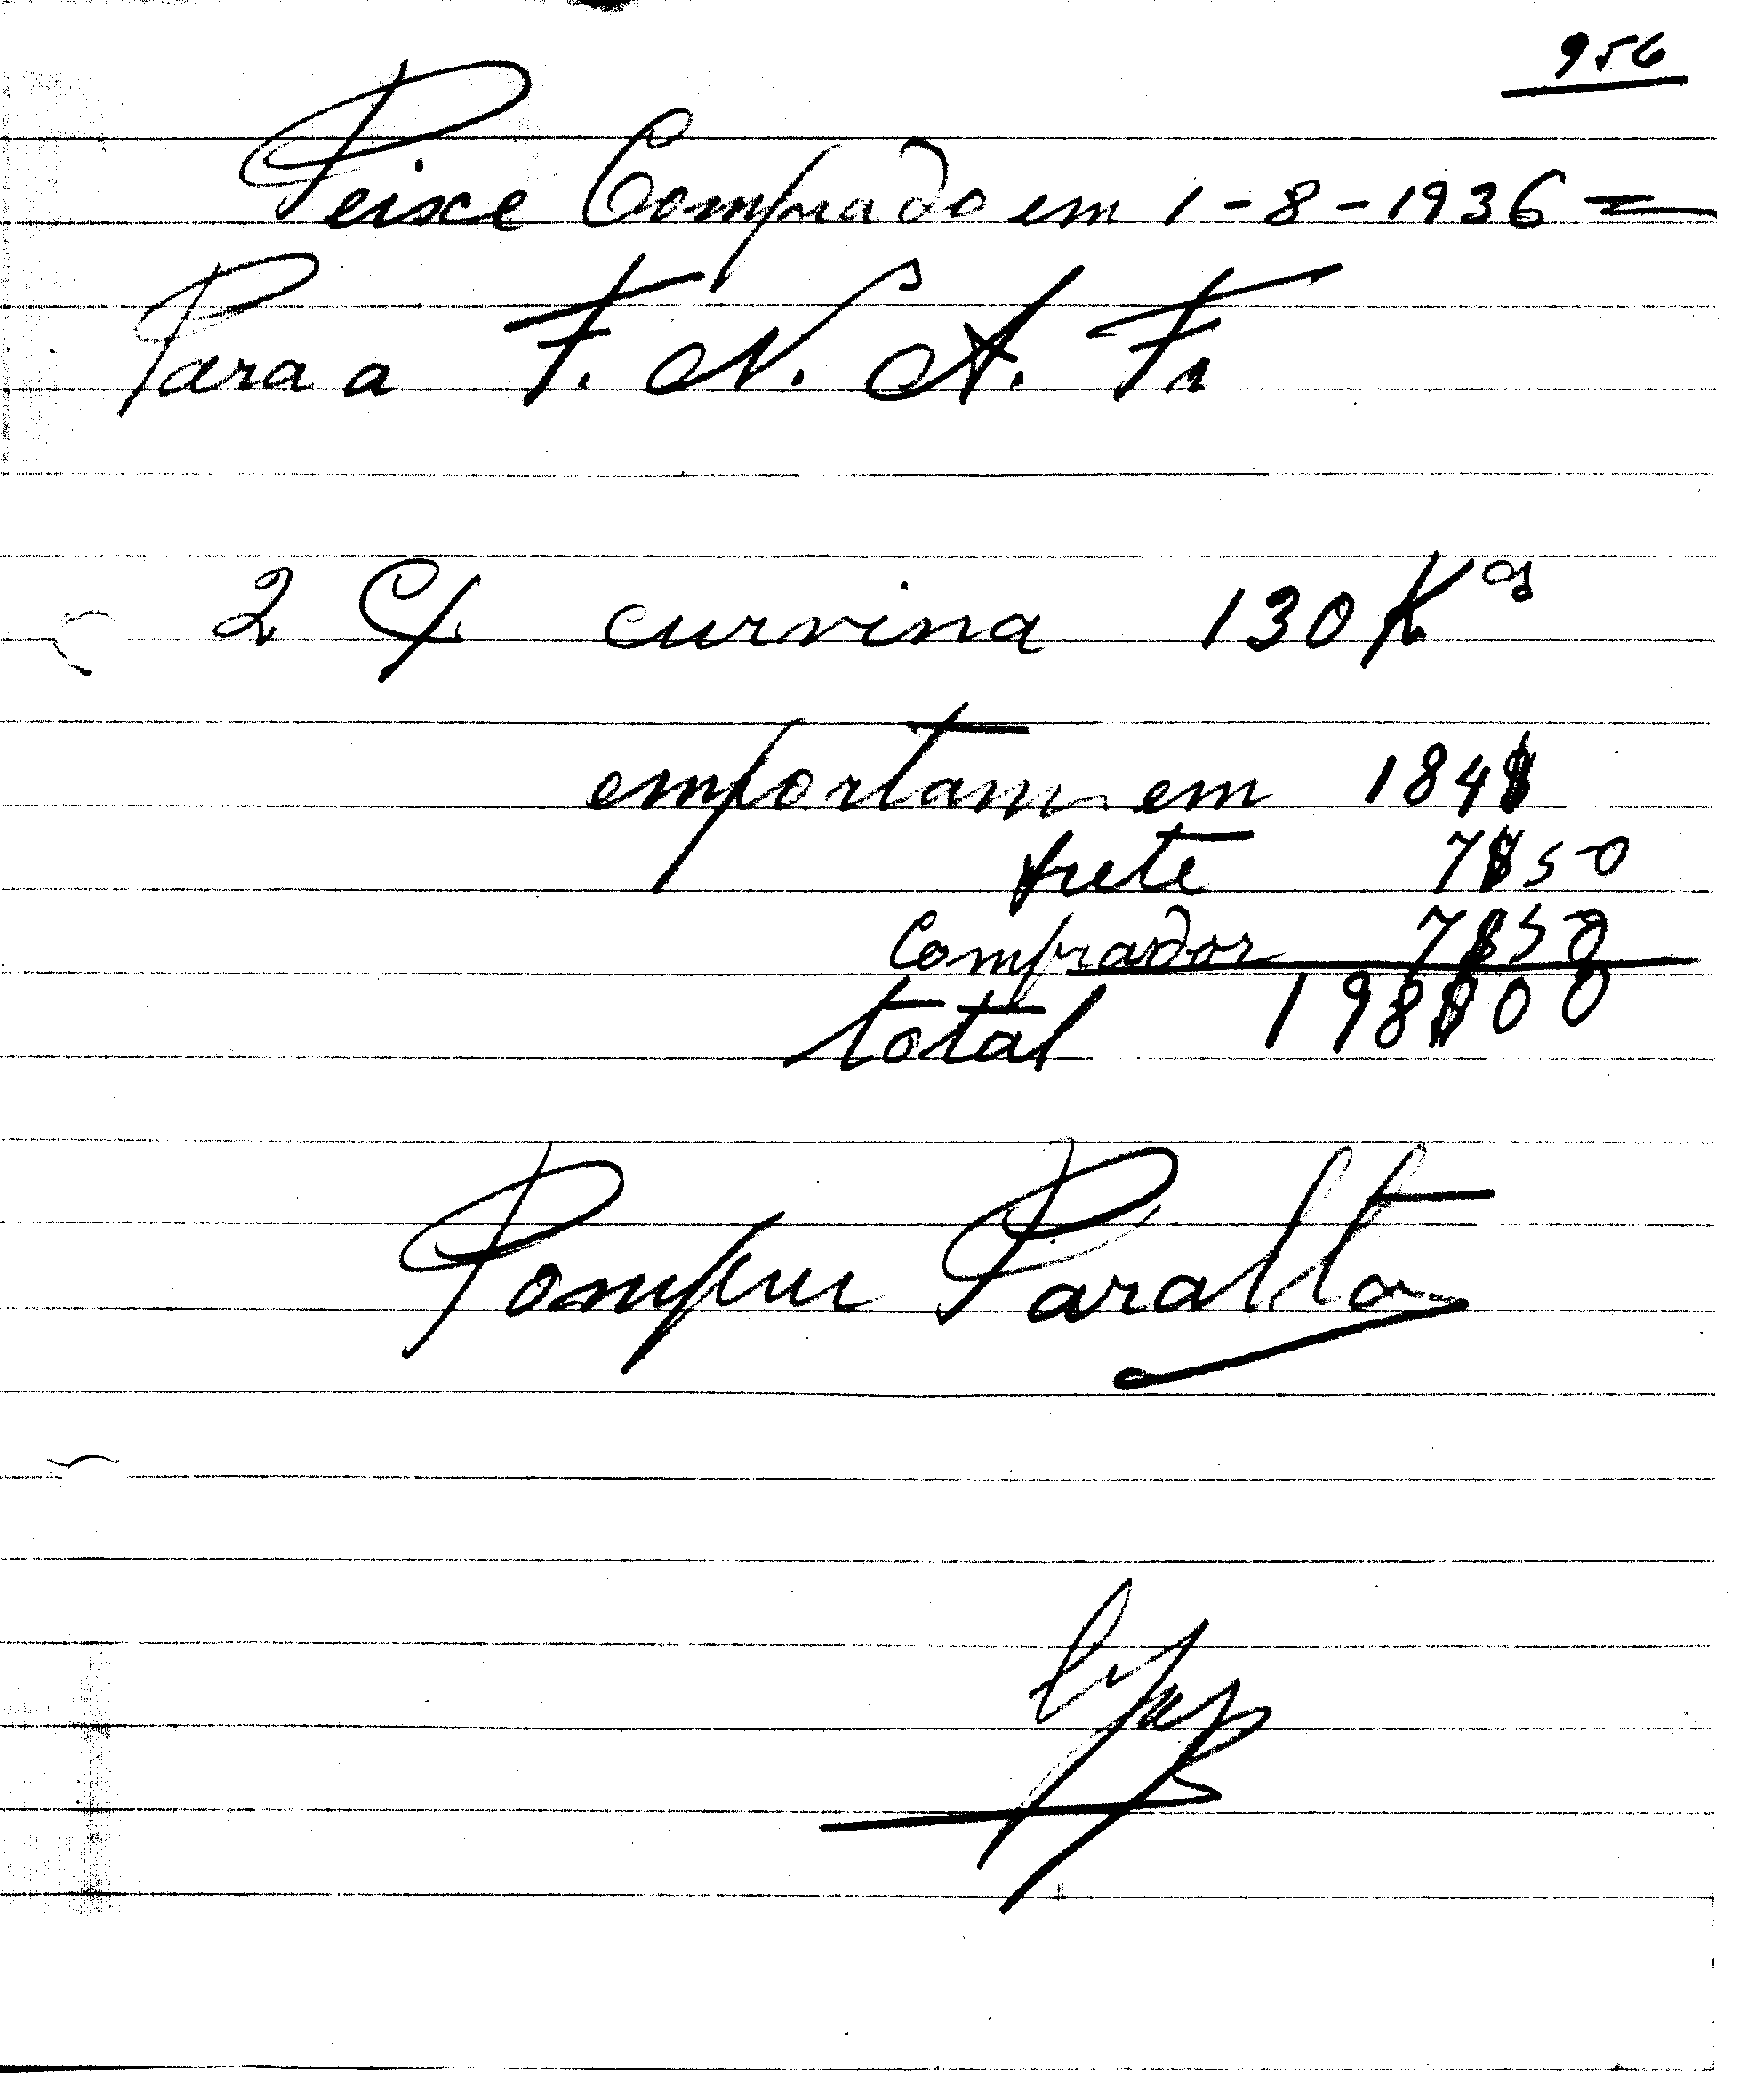 956
Peixe Comprado em 1-8-1936 =
Para a F. N. A. Fa
2 C/ curvina 130 Kos
emportam em 184$
frete 7$50
Comprador 7$50
total 198$00
Pompeu Paralta